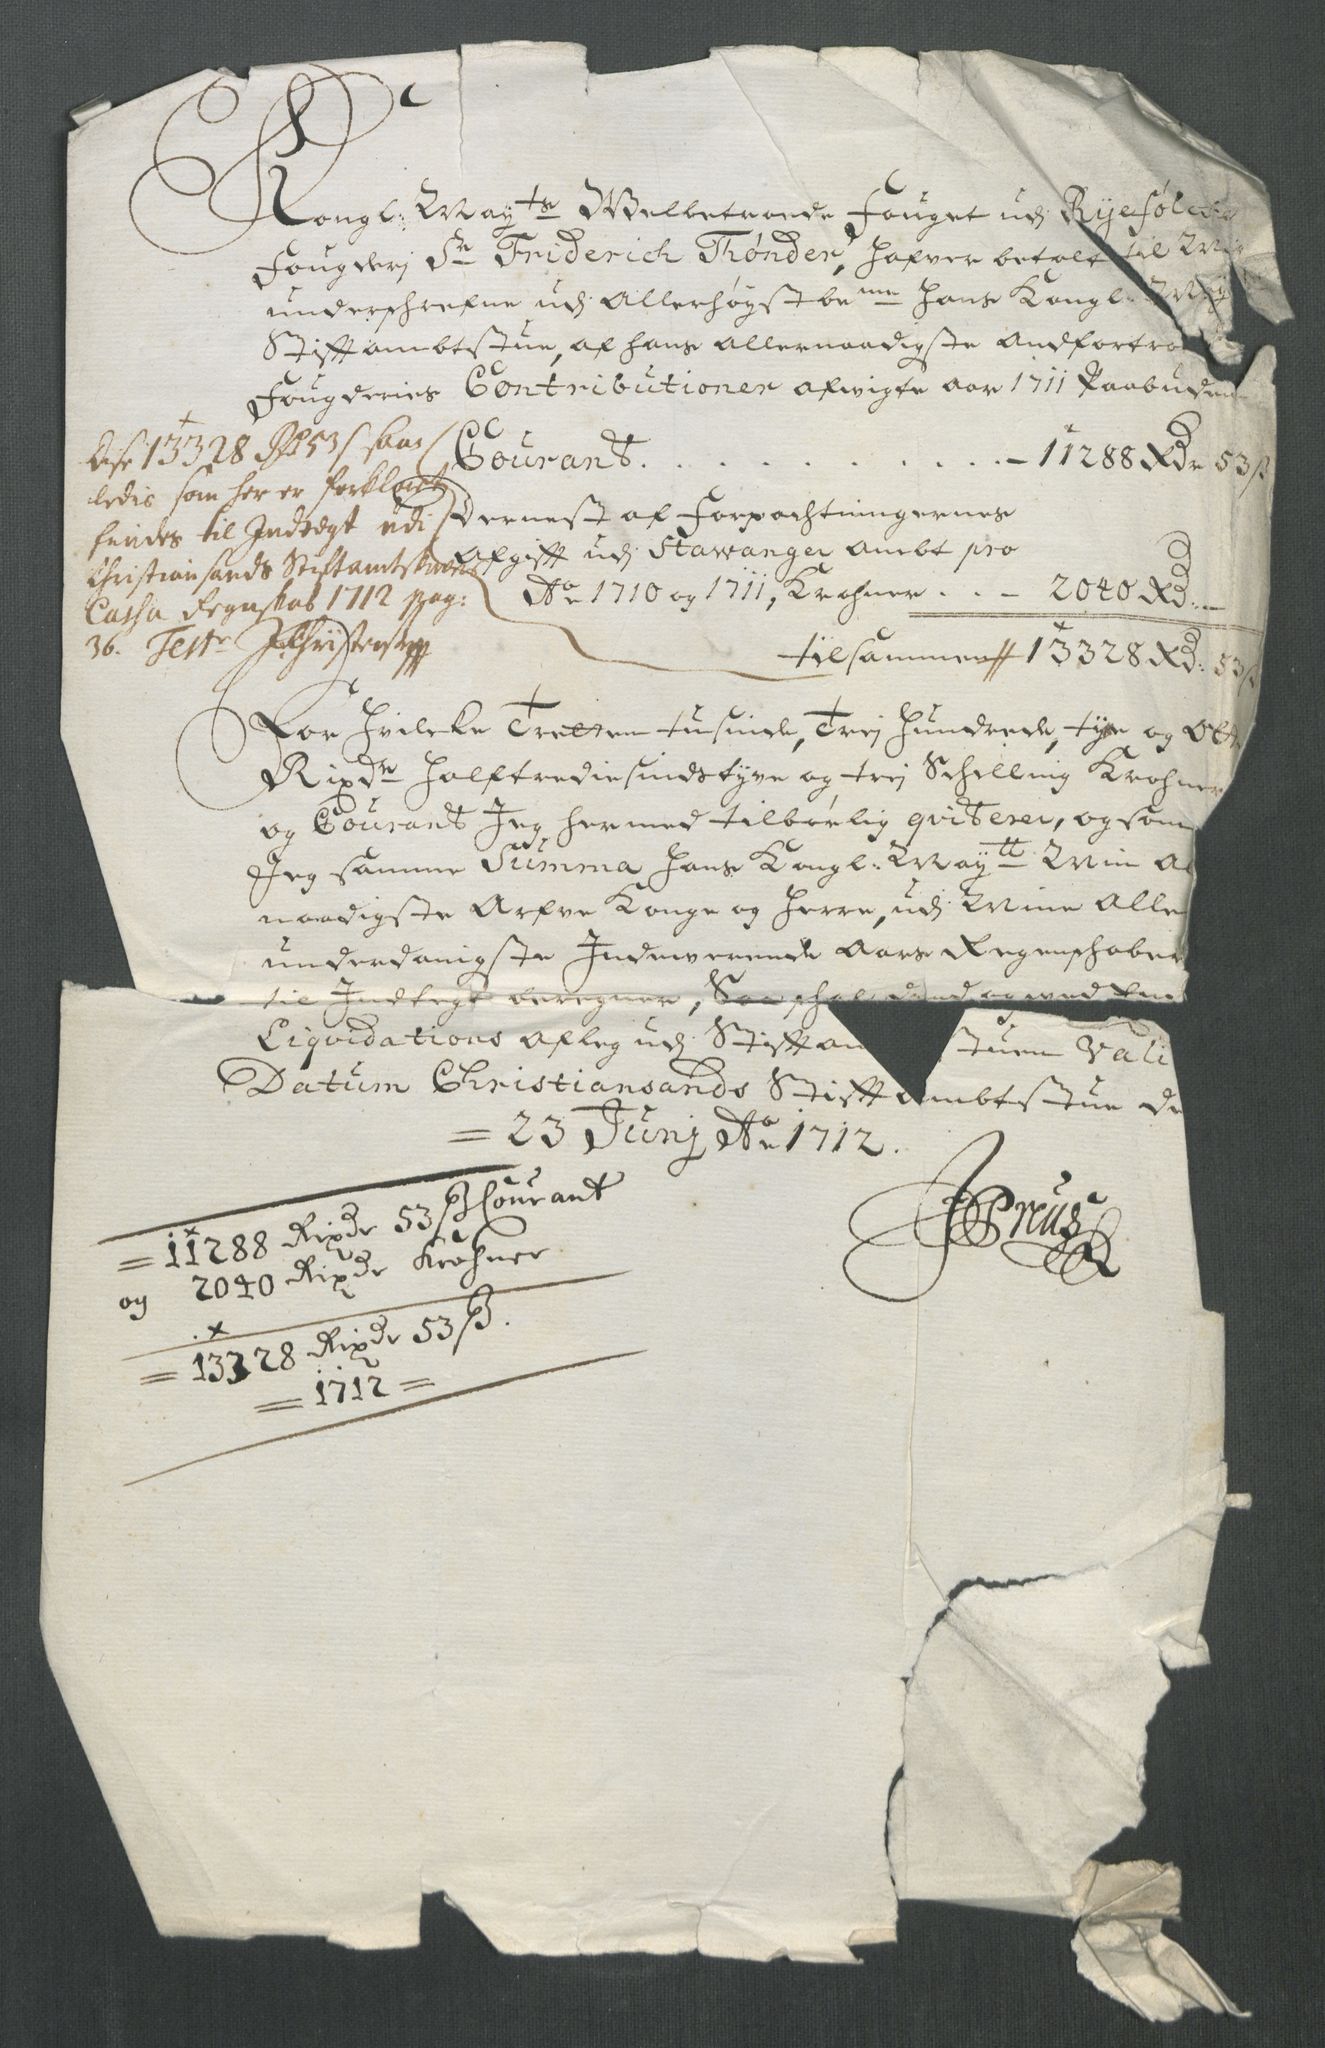 Kongl: May:ts Welbetroede Fouget udj Ryefølcke
Fougderj Sr Friderich Thønder, hafver betalt til Mig
underschrefne udj Allerhøgstbe:me Hans Kongl: May
Stifftambtstue, af hans allernaadigste Andfortro
Fougderies Contributioner afwigte aar 1711 Paabuden
Courant. . . . . . . . . . . . – 11288 Rdr 53 ß
Dernest af Forpachtningernes
Afgifft udj Stawanger Ambt pro
Ao 1710 og 1711, Krohner . . . – 2040 Rd: –
tilsammen // 13328 Rd: 53 ß
Dise 13328 Rd 53 s saa
ledis som her er forklart
findes til Indtegt udi
Christiansands Stiftamtstues
Cassa Regnskab 1712 pag:
36. Teste JChristensen
For Hvilcke Tretten tusinde, Trej Hundrede, tyve og Otte
Rixdr halftrediesindstyve og trej Schilling Krohner
og Courant Jeg hermed tilbørlig qviterer, og som
Jeg samme Summa Hans Kongl: May:tt Min Al
naadigste Arfve Konge og Herre, udj Mine Alle
underdanigste Indewerende Aars Regenschaber
til Indtegt beregner, Saa schal dend og ved
Liqvidations Afleg udj Stifftam stuen Vali
Datum Christiansands Stifftambtstue de
= 23 Junj Ao 1712.
JPreus
= 11288 Rixdr 53 ß Courant
og 2040 Rixdr Krohner
= 13328 Rixdr 53 ß.
= 1712 =